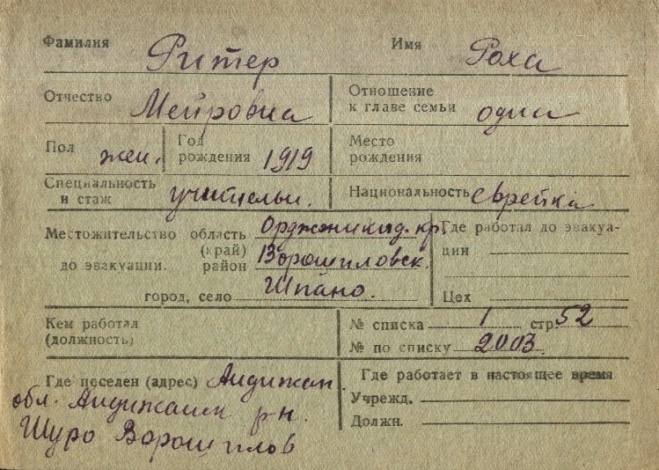 Фамилия Ритер Имя Роха
Отчество Мейровна Отношение к главе семьи одна
Пол жен. Год рождения 1919 Место рождения
Специальность и стаж учительн. Национальность еврейка
Местожительство область (край) Орджоникид. кр. Где работал до эвакуа-
до эвакуации. район Ворошиловск. ции
город, село Шпано. Цех
Кем работал (должность) № списка 1 стр 52
№ по списку 2003.
Где поселен (адрес) Андижан Где работает в настоящее время
обл. Андижанск р-н. Учрежд.
Шуро Ворошилов Должн.